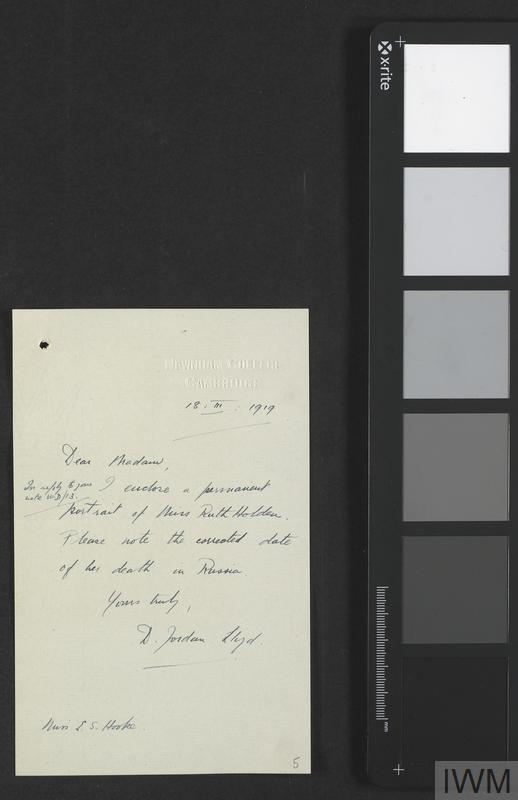 NEWNHAM COLLEGE
CAMBRIDGE
18. III. 1919
Dear Madam,
In reply to your
note W.D/13.
I enclose a permanent
portrait of Miss Ruth Holden.
Please note the corrected date
of her death in Russia.
Yours truly,
D. Jordan Lloyd.
Miss E. S. Hooke.
5
x-rite
mm
IWM